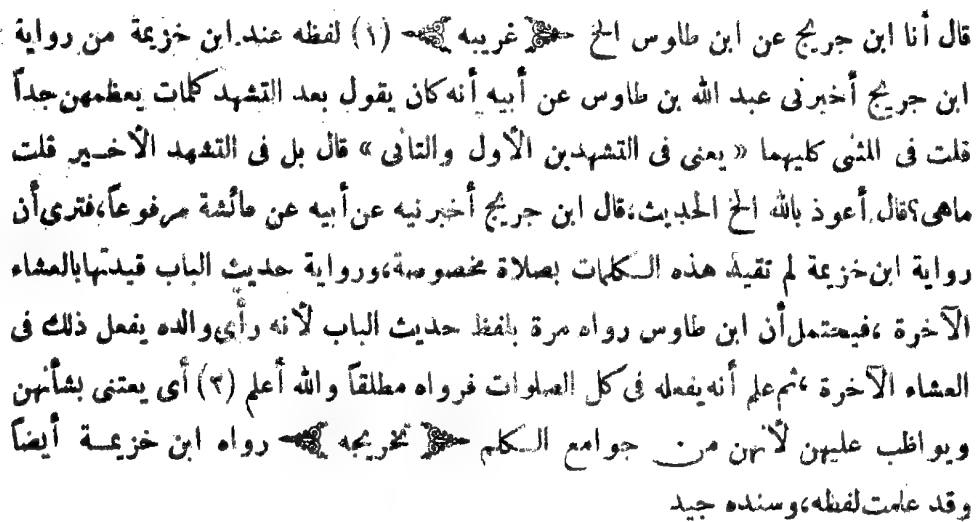 قال أنا ابن جريج عن ابن طاوس الخ ﴿ غريبه ﴾ (١) لفظه عند ابن خزيمة من رواية
ابن جريج أخبرنى عبد الله بن طاوس عن أبيه أنه كان يقول بعد التشهد كلمات يعظمهن جداً
قلت فى المثنى كليهما « يعنى فى التشهدين الأول والثانى » قال بل فى التشهد الأخـير قلت
ماهى؟قال أعوذ بالله الخ الحديث،قال ابن جريج أخبرنيه عن أبيه عن عائشة مرفوعاً،فترى أن
رواية ابن خزيمة لم تقيد هذه الـكلمات بصلاة مخصوصة،ورواية حديث الباب قيدتها بالعشاء
الآخرة ،فيحتمل أن ابن طاوس رواه مرة بلفظ حديث الباب لأنه رأى والده يفعل ذلك فى
العشاء الآخرة ،ثم علم أنه يفعله فى كل الصلوات فرواه مطلقاً والله أعلم (٢) أى يعتنى بشأنهن
ويواظب عليهن لأنهن من جوامع الـكلم ﴿ تخريجه ﴾ رواه ابن خزيمـة أيضاً
وقد علمت لفظه،وسنده جيد